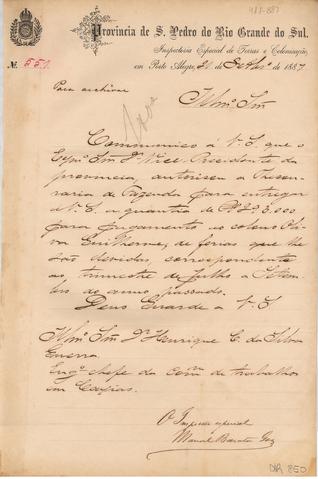 488-887
Provincia de S. Pedro do Rio Grande do Sul.
Inspectoria Especial de Terras e Colonisação,
Nº 551 em Porto Alegre, 21 de de 1887
Para archivar
Illmº Snr
Communico a V.S. que o
Exmº Snr Dr Vice Presidente da
provincia, autorisou a Thesou-
raria de Fazenda para entregar
a V.S. a quantia de
para pagamento ao colono
Guilherme, de ferias que lhe
são devidas, correspondente
ao trimestre de Julho a Setem-
bro do anno passado.
Deus Guarde a V.S.
Illmº Snr Dr Henrique C. da Silva
Guerra.
Engº chefe da Comm de trabalhos
em Caxias.
O Inspector especial
Manoel Barata Góes
DR 850